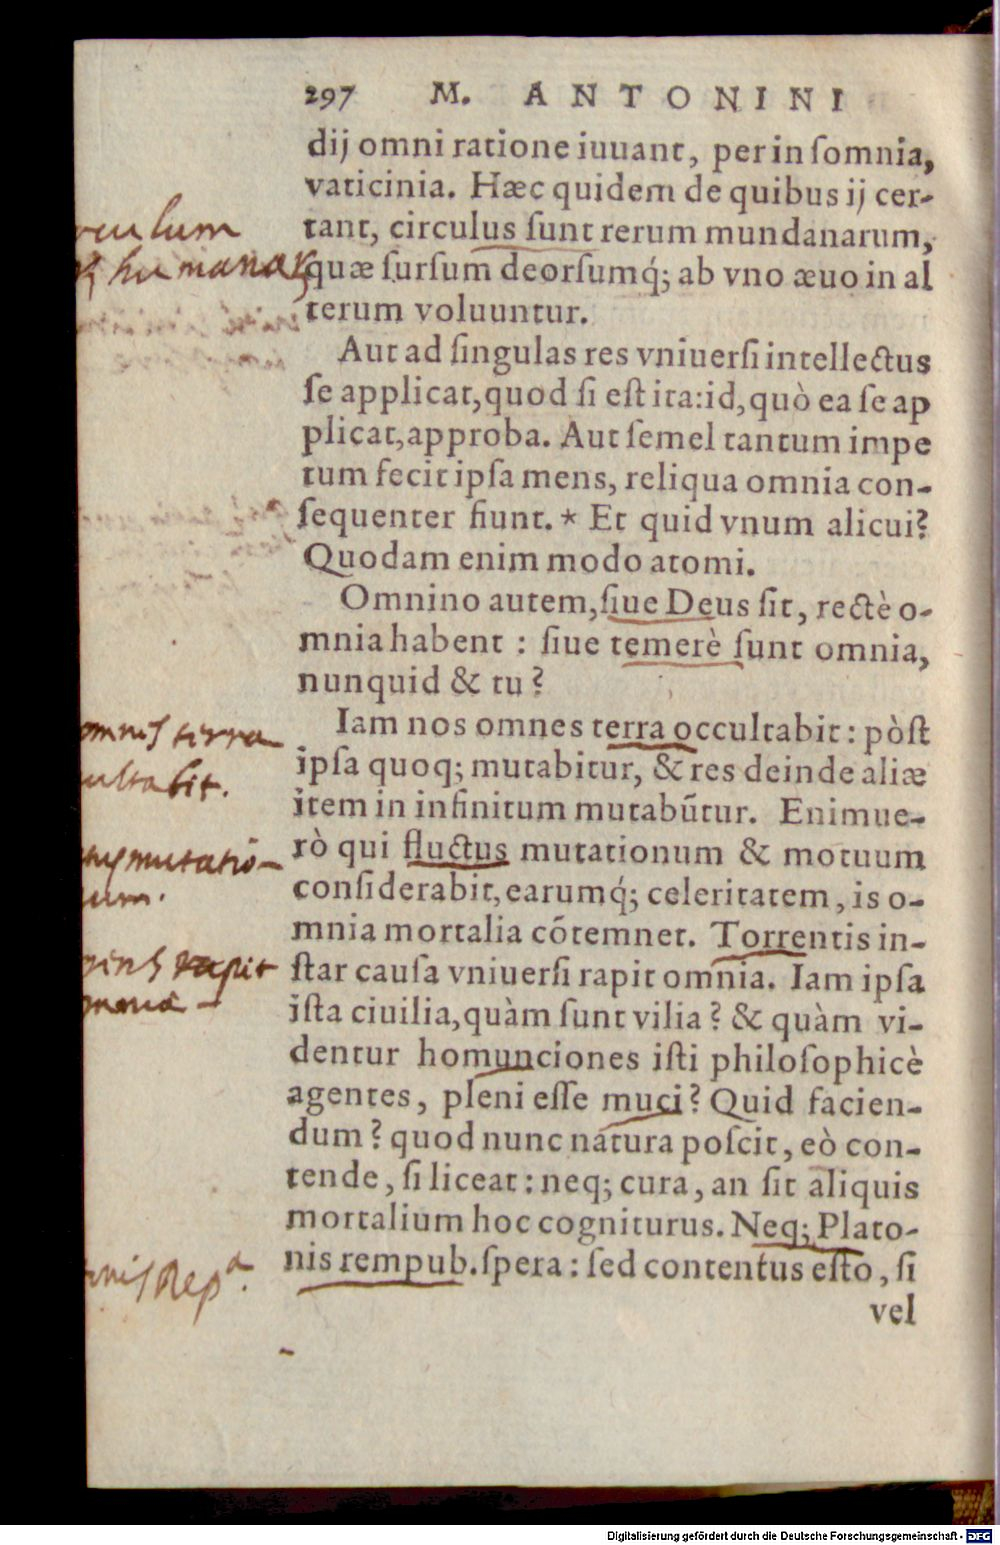 297 M. ANTONINI
dij omni ratione iuuant, per in ſomnia,
vaticinia. Hæc quidem de quibus ij cer-
tant, circulus ſunt rerum mundanarum,
quæ ſurſum deorſumq́; ab vno æuo in al
terum voluuntur.
Aut ad ſingulas res vniuerſi intellectus
ſe applicat, quod ſi eſt ita: id, quò ea ſe ap
plicat, approba. Aut ſemel tantum impe
tum fecit ipſa mens, reliqua omnia con-
ſequenter fiunt. * Et quid vnum alicui?
Quodam enim modo atomi.
Omnino autem, ſiue Deus ſit, rectè o-
mnia habent : ſiue temerè ſunt omnia,
nunquid & tu ?
Iam nos omnes terra occultabit : pòſt
ipſa quoq; mutabitur, & res deinde aliæ
item in infinitum mutabũtur. Enimue-
rò qui fluctus mutationum & motuum
conſiderabit, earumq́; celeritatem, is o-
mnia mortalia cõtemnet. Torrentis in-
ſtar cauſa vniuerſi rapit omnia. Iam ipſa
iſta ciuilia, quàm ſunt vilia ? & quàm vi-
dentur homunciones iſti philoſophicè
agentes, pleni eſſe muci ? Quid facien-
dum ? quod nunc natura poſcit, eò con-
tende, ſi liceat : neq; cura, an ſit aliquis
mortalium hoc cogniturus. Neq; Plato-
nis rempub. ſpera : ſed contentus eſto, ſi
vel
culum
humana
omnis terra
ultabit.
mutatio-
rapit
Rep^a.
Digitalisierung gefördert durch die Deutsche Forschungsgemeinschaft - DFG